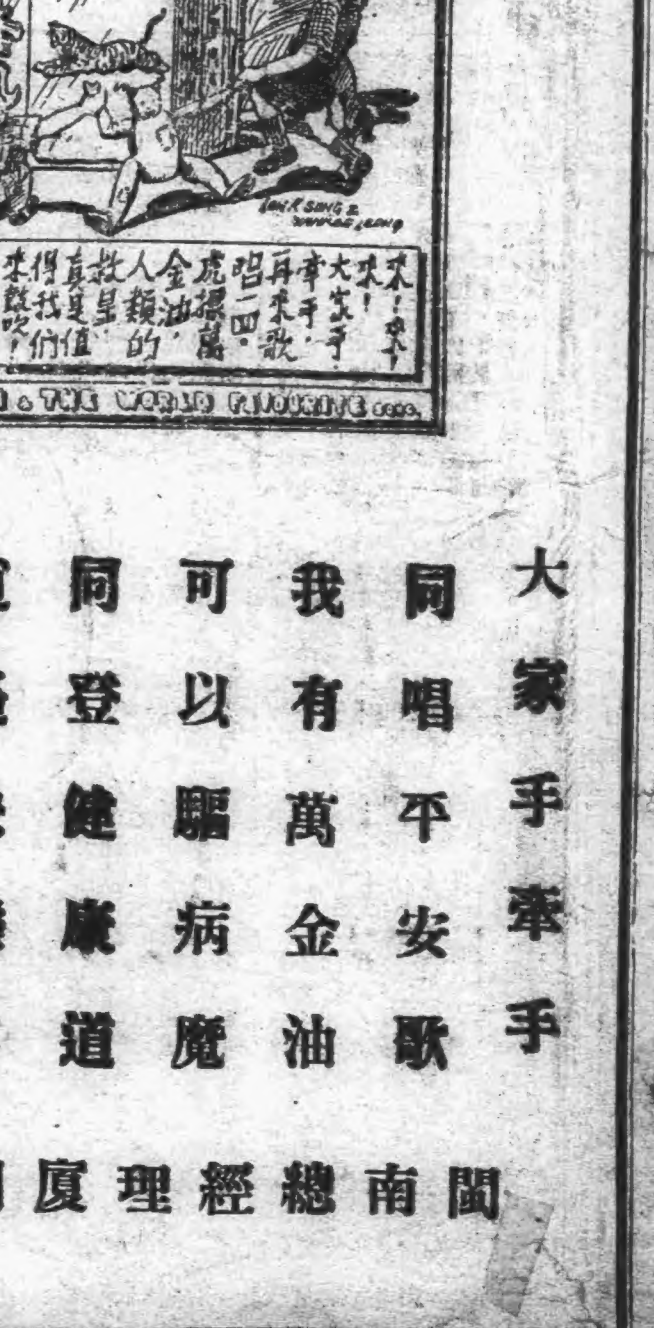 來！來！
來！
大家手
牽手，
再來歌
唱一回。
虎標萬
金油，
人類的
救星，
真是值
得我們
來鼓吹！
& THE WORLD FAVOURITE SONG.
大家手牽手
同唱平安歌
我有萬金油
可以驅病魔
同登健康道
閩南總經理廈